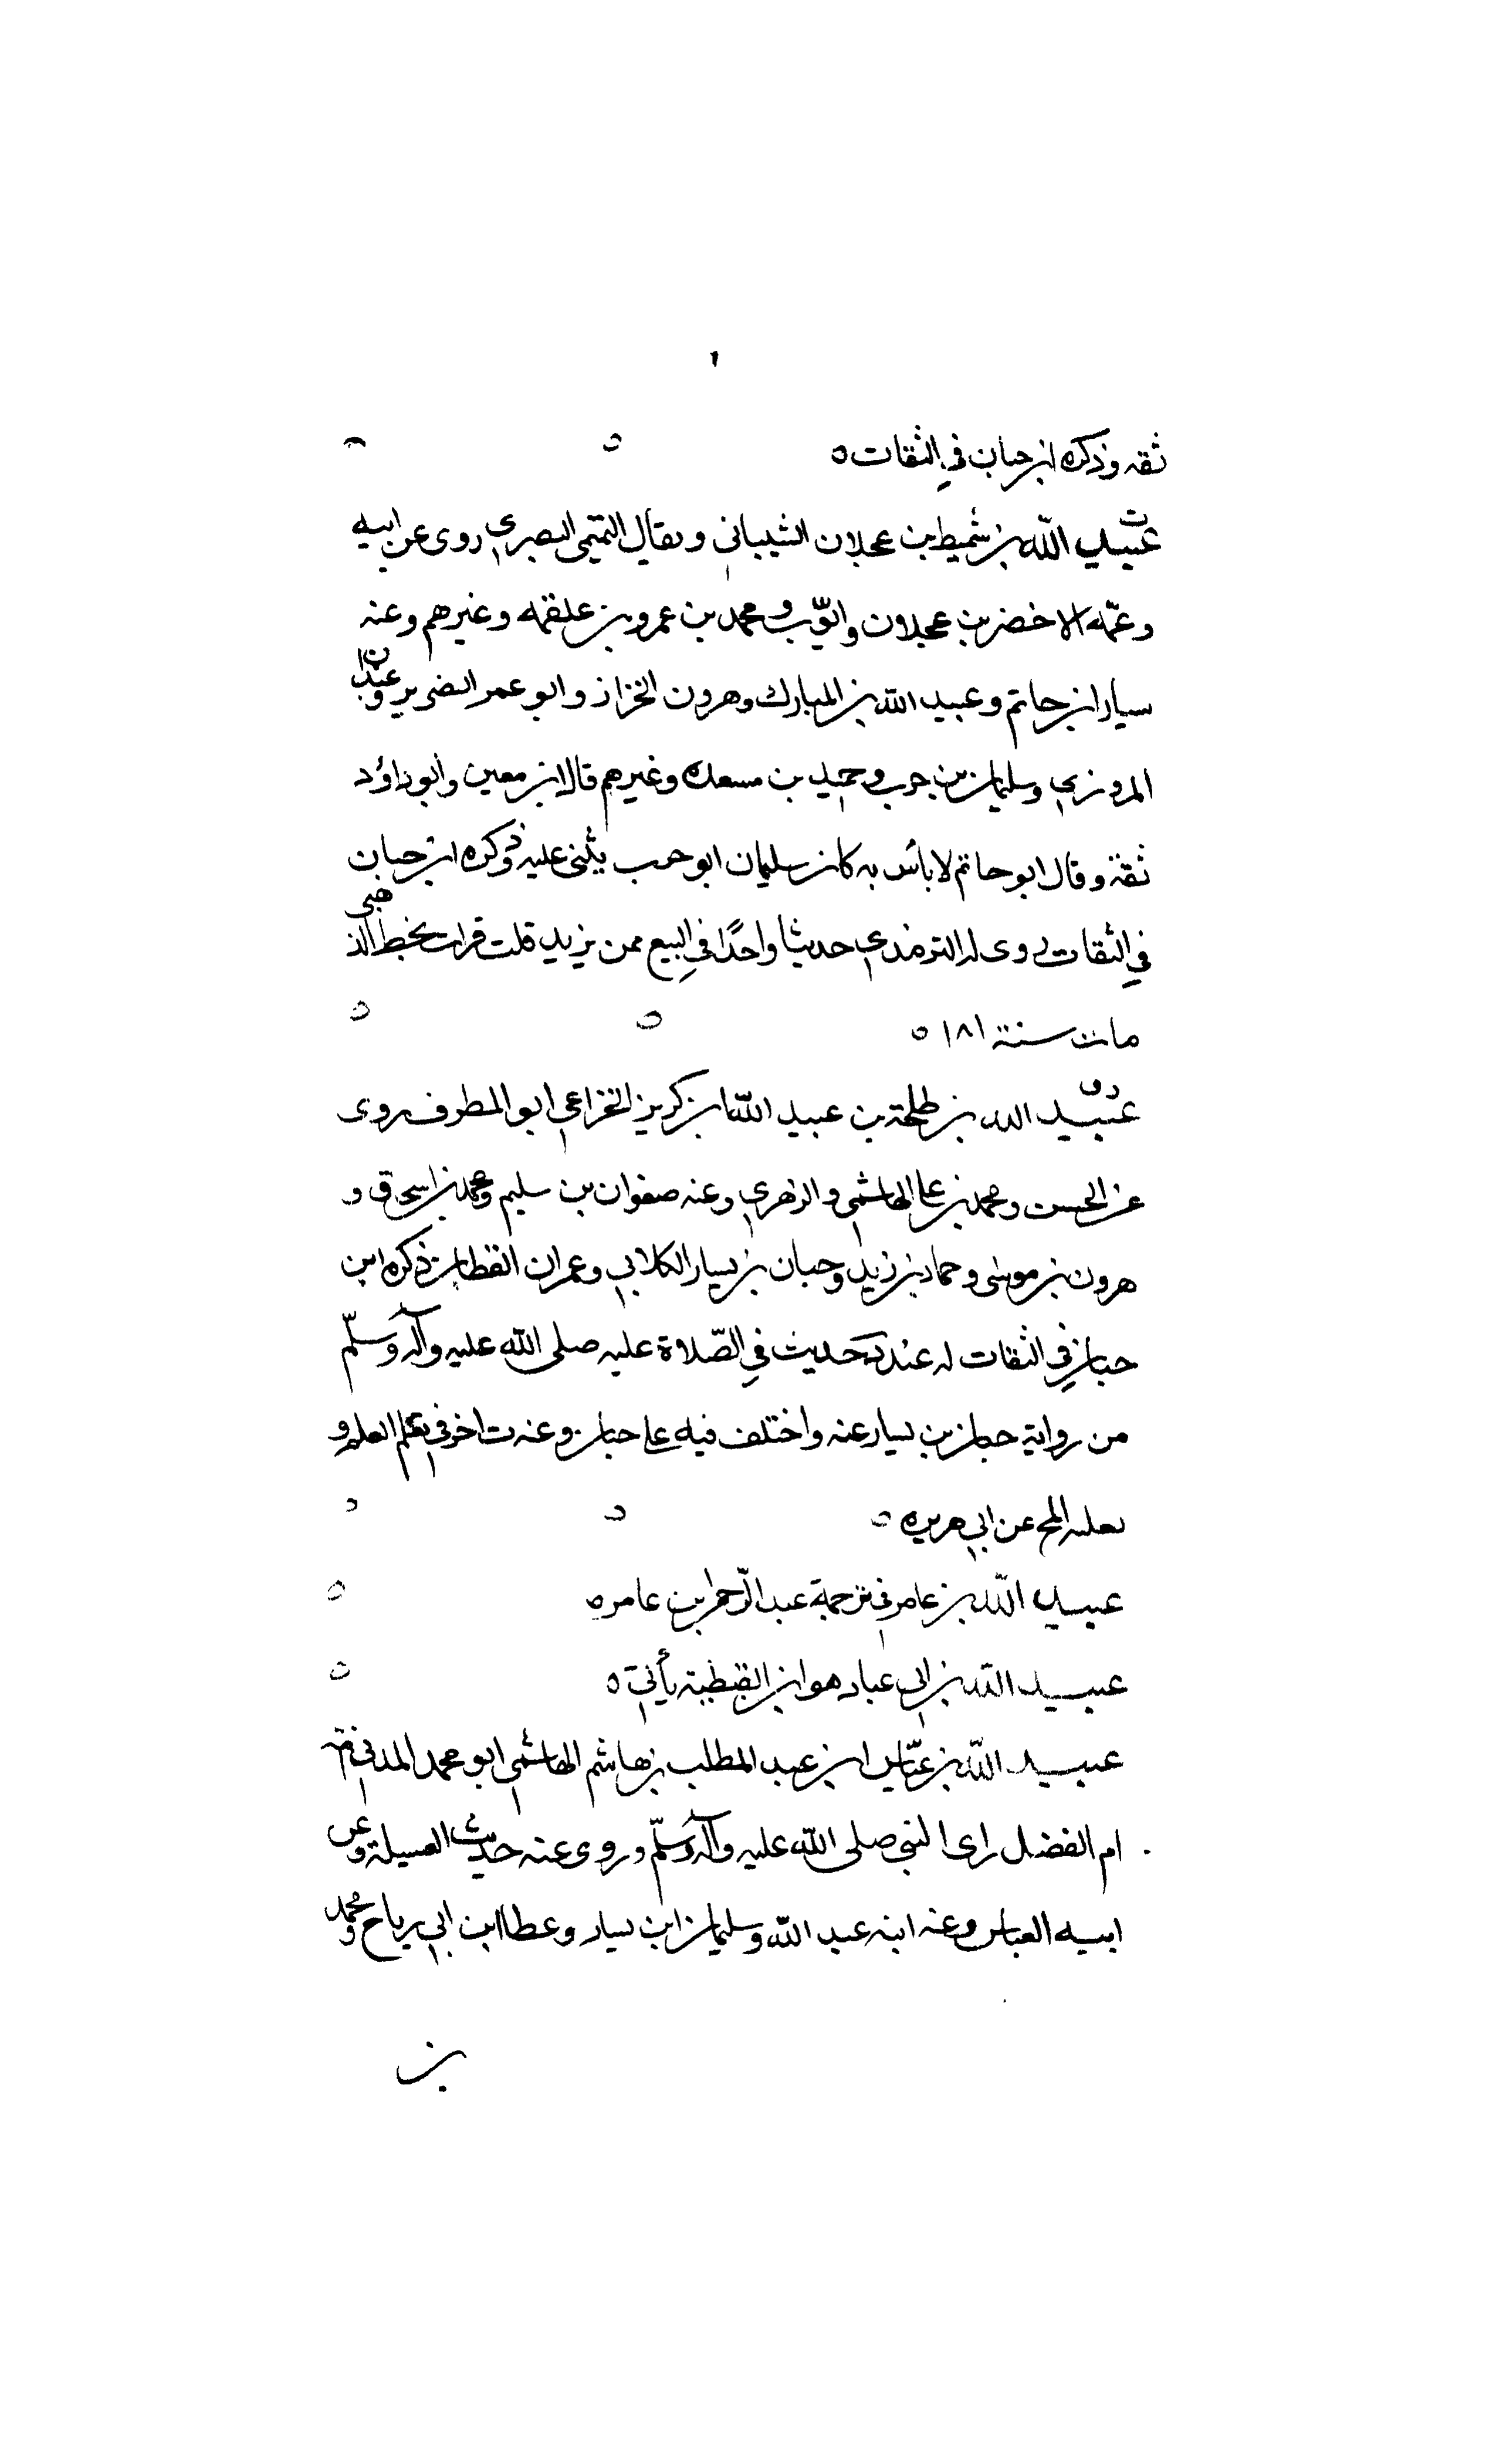 ثقه وذكره ابن حبان في الثقات ه
ت
عبيد الله بن شميط بن عجلان الشيباني ويقال التميمي البصري روى عن ابيه
وعمه الاخضر بن عجلان وايّوب ومحمد بن عمرو بن علقمه وغيرهم وعنه
سيار ابن حاتم وعبيد الله بن المبارك وهرون الخزاز وابو عمر الضرير وعبدان
المروزي وسليمان بن حرب وحميد بن مسعده وغيرهم قال ابن معين وابو داؤد
ثقة وقال ابو حاتم لا بأس به كان سليمان ابو حرب يثني عليه وذكره ابن حبان
في الثقات روى له الترمذي حديثا واحدًا في البيع ممن يزيد قلت قرات بخط الذهبي
مات سنة ١٨١ ه
د ق
عبيد الله بن طلحة بن عبيد الله بن كريز الخزاعي ابو المطرف روى
عن الحسن ومحمد بن علي الهاشمي والزهري وعنه صفوان بن سليم ومحمد بن اسحق و
هرون بن موسى وحماد بن زيد وحبان بن يسار الكلابي وعمران القطان ذكره ابن
حبان في الثقات له عند د حديث في الصّلاة عليه صلى الله عليه وآله وسلّم
من رواية حبان بن يسار عنه واختلف فيه على حبان وعنه ت اخر في تعلم العلم و
تعليمه الخ عن ابي هريره ه
عبيد الله بن عامر في ترجمة عبد الرّحمن بن عامر ه
عبيد الله بن ابي عباد هو ابن القبطية يأتي ه
عبيد الله بن عبّاس ابن عبد المطلب بن هاشم الهاشمي ابو محمد المدني امه
ام الفضل راى النبي صلى الله عليه وآله وسلّم وروى عنه حديث العسيلة وعن
ابيه العباس وعنه ابنه عبد الله وسليمان ابن يسار وعطا ابن ابي رباح ومحمد
بن